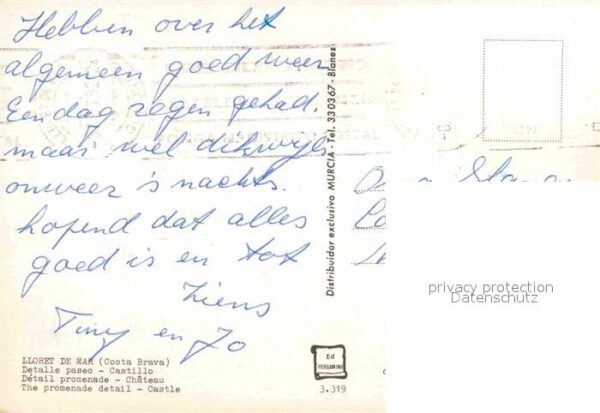 Hebben over het
algemeen goed weer
Een dag regen gehad.
maar wel dikwijls
onweer 's nachts.
hopend dat alles
goed is en tot
ziens
Tiny en Jo
LLORET DE MAR (Costa Brava)
Detalle paseo - Castillo
Détail promenade - Château
The promenade detail - Castle
Ed
PERGAMINO
3.319
Distribuidor exclusivo MURCIA - Tel. 330367 - Blanes
privacy protection
Datenschutz